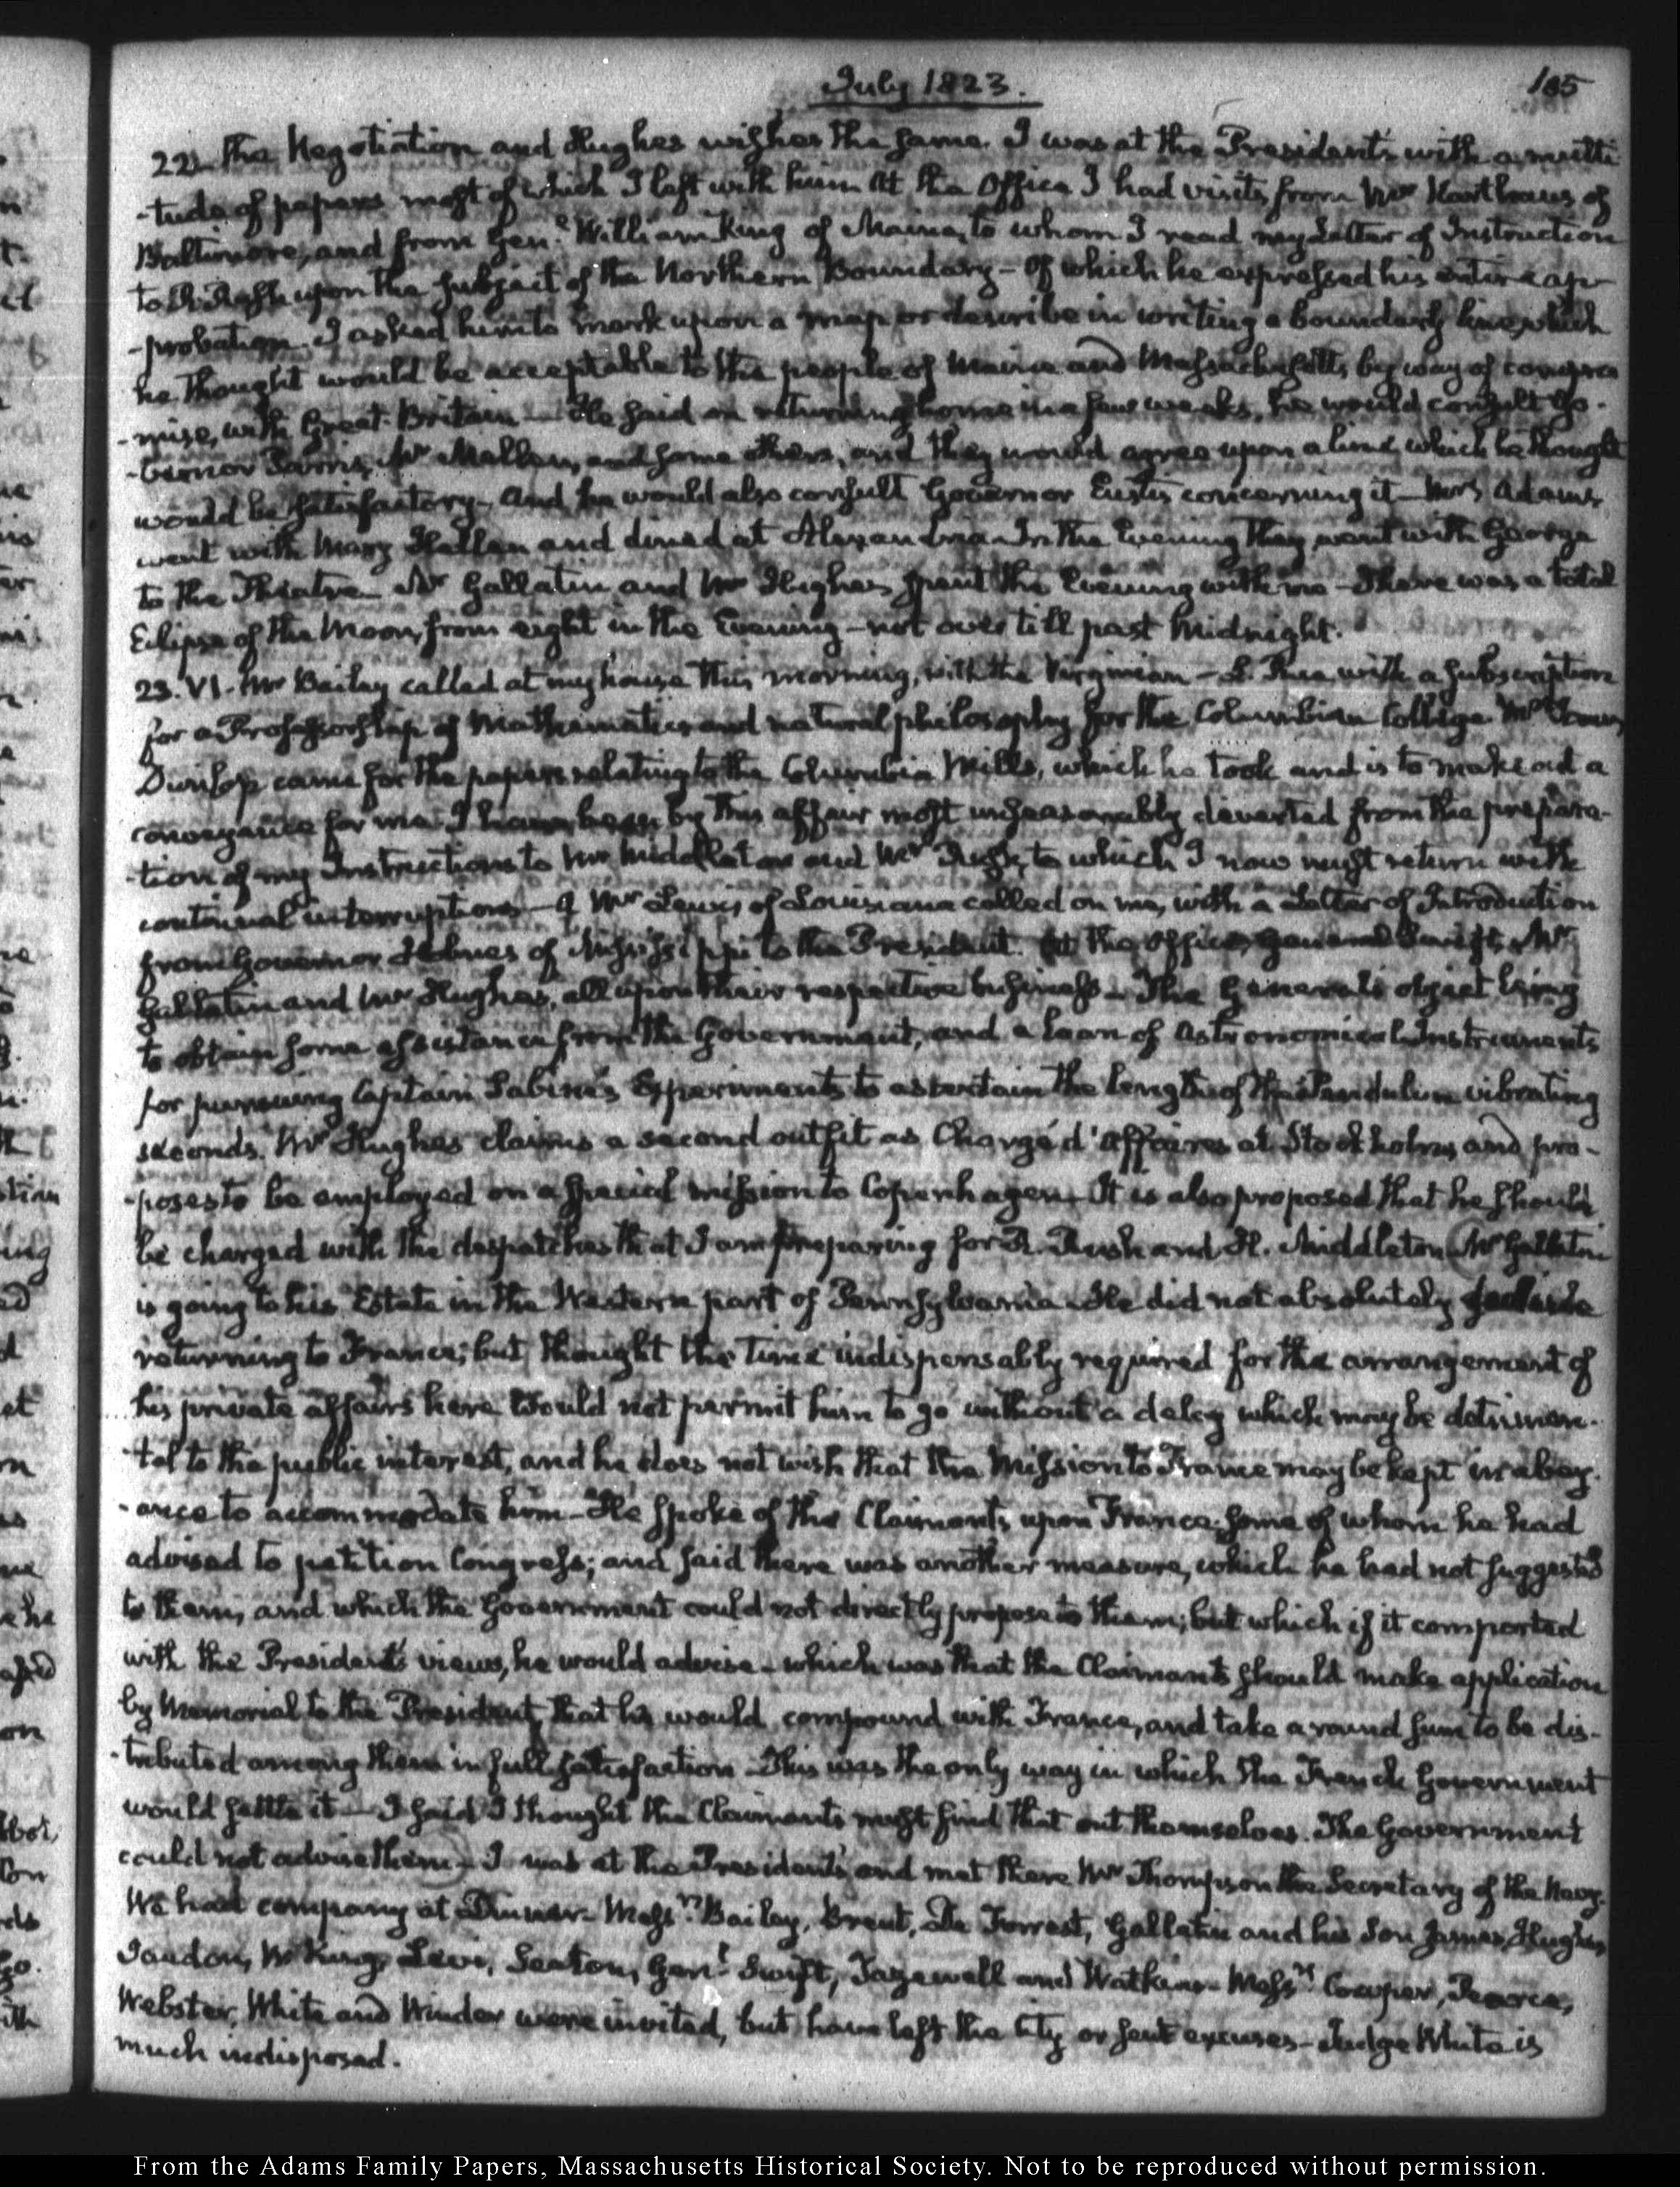 July 1823.
185
22. the Negotiation and Hughes wishes the same. I was at the President's with a multi
-tude of papers most of which I left with him At the Office I had visits from Mr Karthaus of
Baltimore, and from Genl. William King of Maine, to whom I read my Letter of Instruction
to R. Rush upon the subject of the Northern Boundary - Of which he expressed his entire ap-
-probation. I asked him to mark upon a map or describe in writing a boundary line, which
he thought would be acceptable to the people of Maine and Massachusetts, by way of compro
-mise, with Great-Britain - He said on returning home in a few weeks, he would consult Go-
-vernor Parris, Mr Mellen, and some others, and they would agree upon a line which he thought
would be satisfactory - And he would also consult Governor Eustis concerning it - Mrs Adams
went with Mary Hellen and dined at Alexandria - In the Evening they went with George
to the Theatre - Mr Gallatin and Mr Hughes spent the Evening with me - There was a total
Eclipse of the Moon, from eight in the Evening - not over till past Midnight.
23. VI. Mr Bailey called at my house this morning, with the Virginian - L. Rice with a subscription
for a Professorship of Mathematics and natural philosophy for the Columbian College. Mr
Dunlop came for the papers relating to the Columbia Mills, which he took and is to make out a
conveyance for me. I have been by this affair most unseasonably diverted from the prepara-
-tion of my Instructions to Mr Middleton and Mr Rush, to which I now must return with
continual interruptions - A Mr Lewis of Louisiana called on me, with a Letter of Introduction
from Governor Holmes of Mississippi to the President. At the Office, General Swift, Mr
Gallatin and Mr Hughes, all upon their respective business - The General's object being
to obtain some assistance from the Government, and a loan of Astronomical Instruments
for pursuing Captain Sabine's Experiments to ascertain the length of the Pendulum vibrating
seconds. Mr Hughes claims a second outfit as Chargé d'Affaires at Stockholm, and pro-
-poses to be employed on a special mission to Copenhagen - It is also proposed that he should
be charged with the despatches that I am preparing for R. Rush and H. Middleton. Mr Gallatin
is going to his Estate in the Western part of Pennsylvania. He did not absolutely
returning to France; but thought the time indispensably required for the arrangement of
his private affairs here would not permit him to go without a delay which may be detrimen-
-tal to the public interest, and he does not wish that the Mission to France may be kept in abey-
-ance to accommodate him - He spoke of the Claimants upon France; some of whom he had
advised to petition Congress; and said there was another measure, which he had not suggested
to them, and which the Government could not directly propose to them; but which if it comported
with the President's views, he would advise - which was that the Claimants should make application
by Memorial to the President, that he would compound with France, and take a round sum to be dis-
-tributed among them in full satisfaction - This was the only way in which the French Government
would settle it - I said I thought the Claimants must find that out themselves. The Government
could not advise them - I was at the President's and met there Mr Thompson the Secretary of the Navy.
We had company at Dinner - Messrs. Bailey, Brent, De Forrest, Gallatin and his Son James, Hughes,
Jaudon, W King, Levi, Seaton, Genl. Swift, Tazewell and Watkins - Messrs Cowper, Pearce,
Webster, White and Winder were invited, but have left the City or sent excuses - Judge White is
much indisposed.
From the Adams Family Papers, Massachusetts Historical Society. Not to be reproduced without permission.